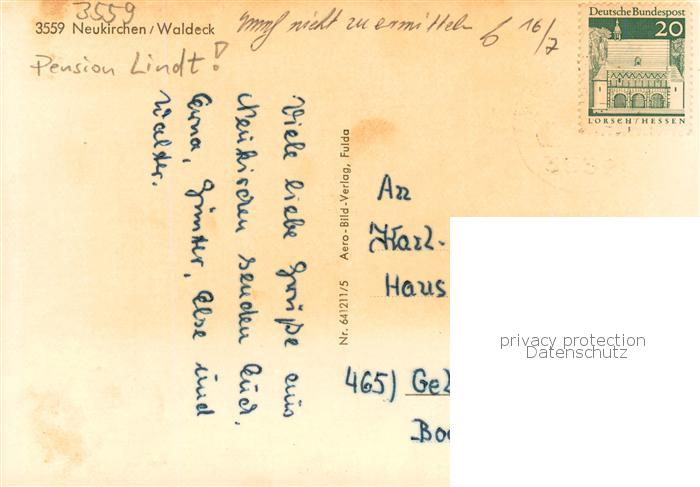 3559
3559 Neukirchen / Waldeck
nicht zu ermitteln
6 16/7
Pension Lindt!
Deutsche Bundespost
20
LORSCH / HESSEN
Viele liebe Grüße aus
Neukirchen senden Euch,
Erna, Günter, Else und
Walter.
Nr. 641211/5 Aero-Bild-Verlag, Fulda
An
Karl-
Haus
465) Gel
Boc
privacy protection
Datenschutz